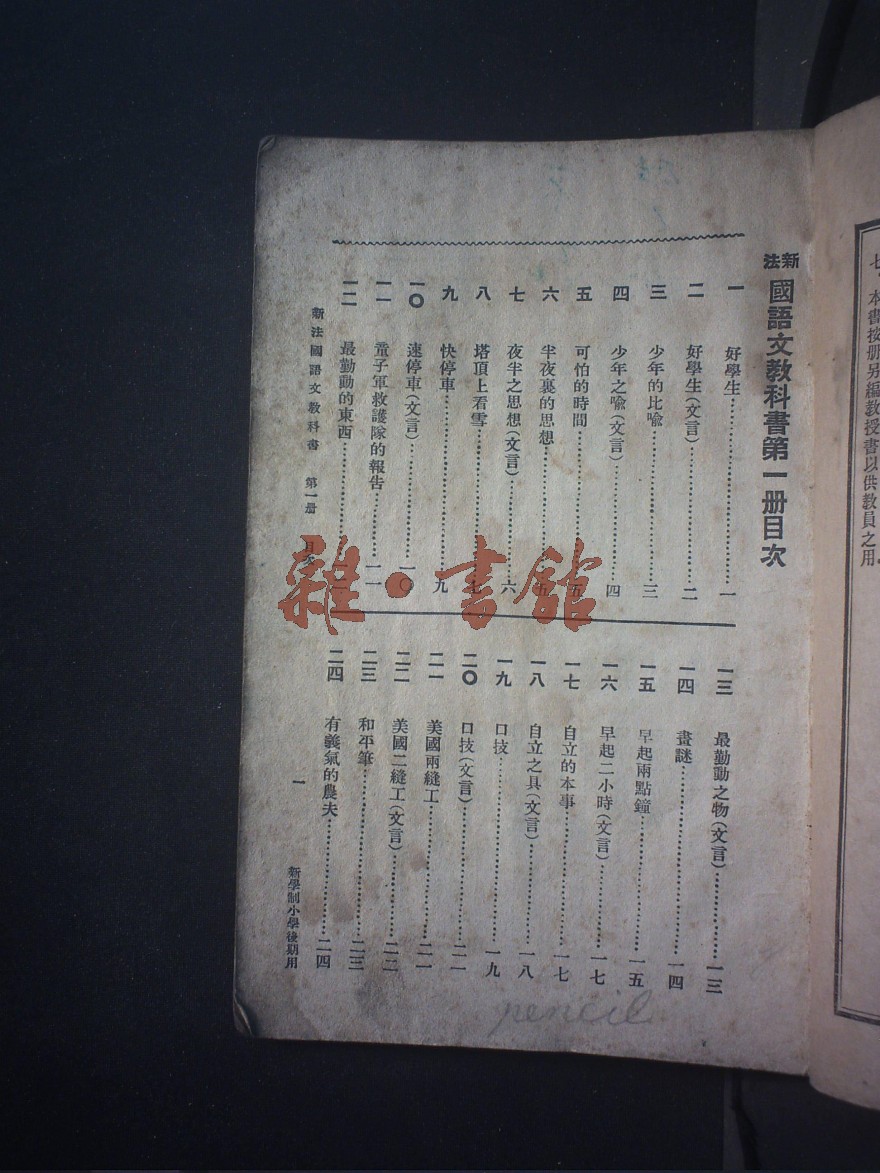 七、本書按册另編敎授書以供敎員之用。
新法國語文敎科書第一册目次
一 好學生 一
二 好學生(文言) 二
三 少年的比喩 三
四 少年之喩(文言) 四
五 可怕的時間 五
六 半夜裏的思想 五
七 夜半之思想(文言) 六
八 塔頂上看雪 七
九 快停車 九
一〇 速停車(文言) 一〇
一一 童子軍救護隊的報告 一一
一二 最勤動的東西
一三 最勤動之物(文言) 一三
一四 畫謎 一四
一五 早起兩點鐘 一五
一六 早起二小時(文言) 一七
一七 自立的本事 一七
一八 自立之具(文言) 一八
一九 口技 一九
二〇 口技(文言) 二一
二一 美國兩縫工 二一
二二 美國二縫工(文言) 二二
二三 和平筆 二三
二四 有義氣的農夫 二四
新法國語文敎科書 第一册 目次
一
新學制小學後期用
雜·書館
pencil